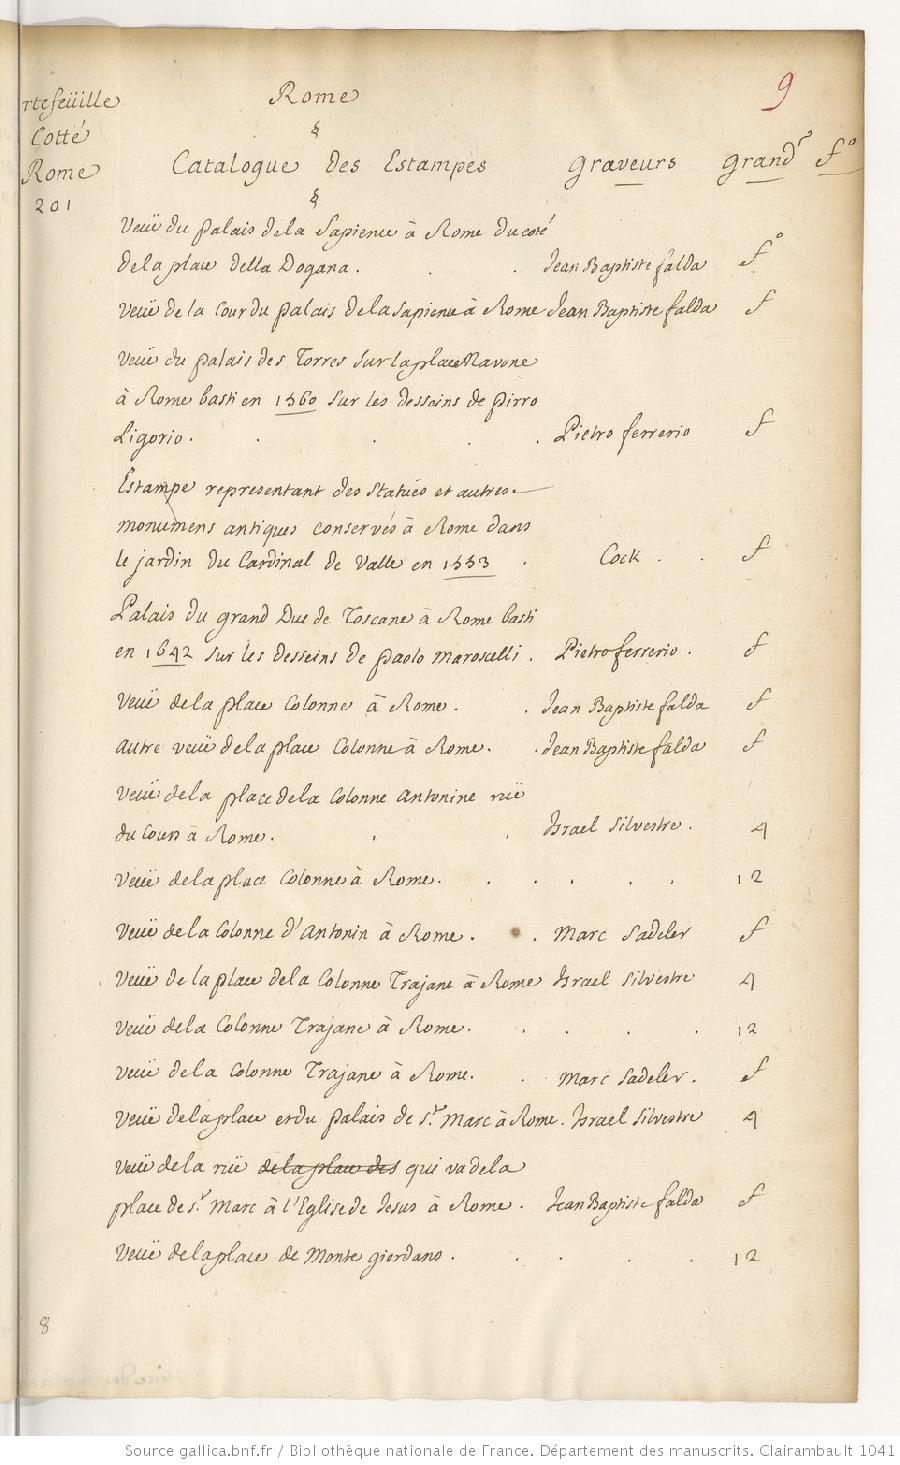 9
rtefeüille
Rome
Cotté
§
Rome
Catalogue des Estampes graveurs grandr fo
201
§
Veuë du palais de la Sapience à Rome du coté
de la place della Dogana. . . Jean Baptiste falda fo
Veuë de la Cour du palais de la Sapience à Rome Jean Baptiste falda f
Veuë du palais des Torres sur la place Navone
à Rome basti en 1560 sur les desseins de pirro
Ligorio. . . . . Pietro ferrerio f
Estampe representant des statuës et autres
monumens antiques conservés à Rome dans
le jardin du Cardinal de Valle en 1553 . Cock . . f
Palais du grand Duc de Toscane à Rome basti
en 1642 sur les desseins de paolo maroscelli . Pietro ferrerio . f
Veuë de la place Colonne à Rome. . Jean Baptiste falda f
autre veuë de la place Colonne à Rome. . Jean Baptiste falda f
Veuë de la place de la Colonne antonine ruë
du Cours à Rome. . . Israel Silvestre . 4
Veuë de la place Colonne à Rome. . . . . . 12
Veuë de la Colonne d'Antonin à Rome . . Marc Sadeler f
Veuë de la place de la Colonne Trajane à Rome Israel Silvestre 4
Veuë de la Colonne Trajane à Rome. . . . . 12
Veuë de la Colonne Trajane à Rome. . Marc Sadeler . f
Veuë de la place et du palais de St. Marc à Rome . Israel Silvestre 4
Veuë de la ruë de la place des qui va de la
place de St. Marc à l'Eglise de Jesus à Rome . Jean Baptiste falda f
Veuë de la place de Monte giordano . . . . . 12
8
Source gallica.bnf.fr / Bibliothèque nationale de France. Département des manuscrits. Clairambault 1041